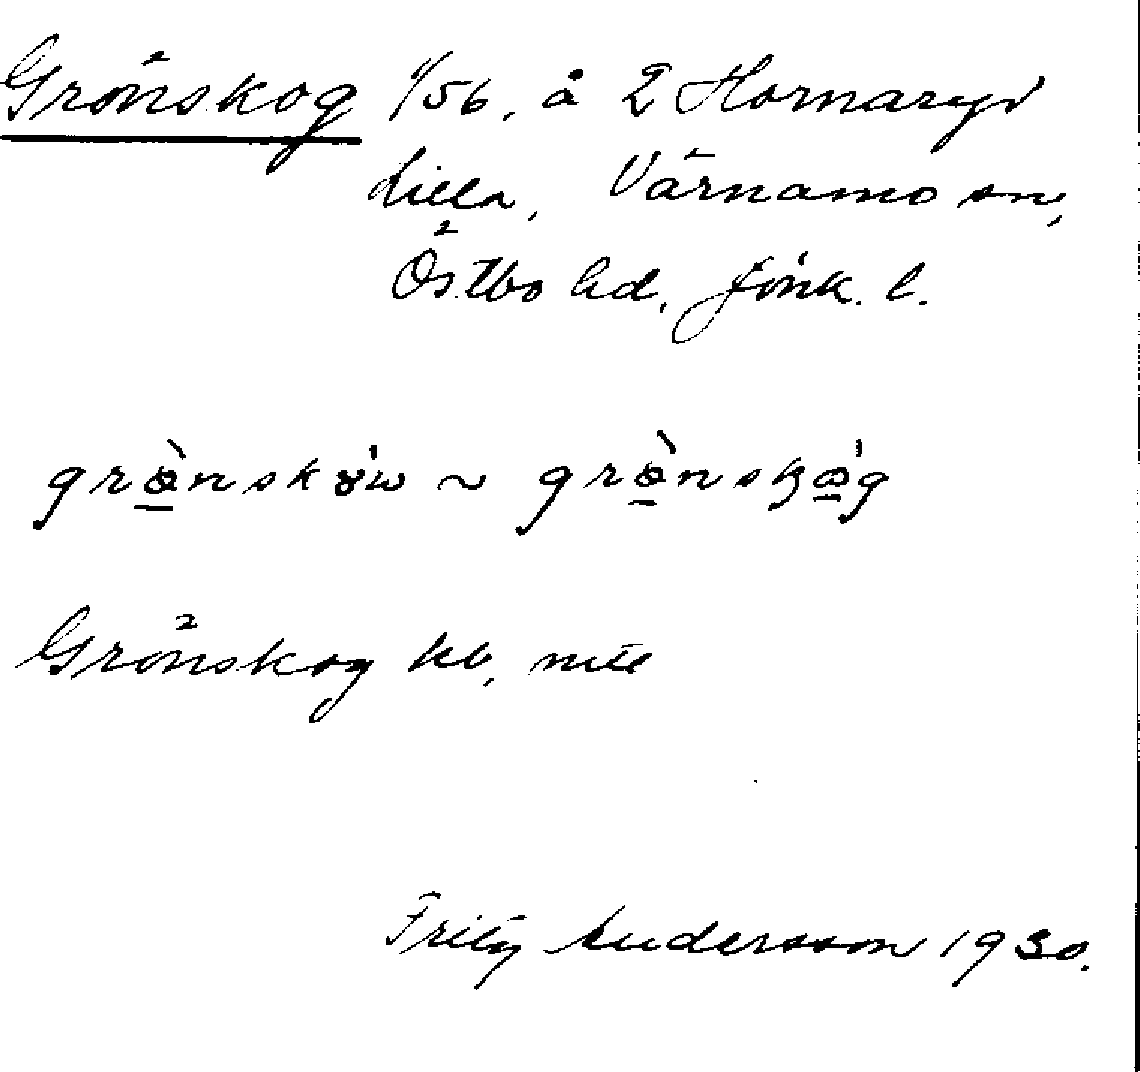 Grönskog 1/56, å 2 Hornaryd
Lilla, Värnamo sn,
Östbo hd, Jönk. l.
grö̀nsków ~ grö̀nskóg
Grönskog kb,
Fritz Andersson 1930.